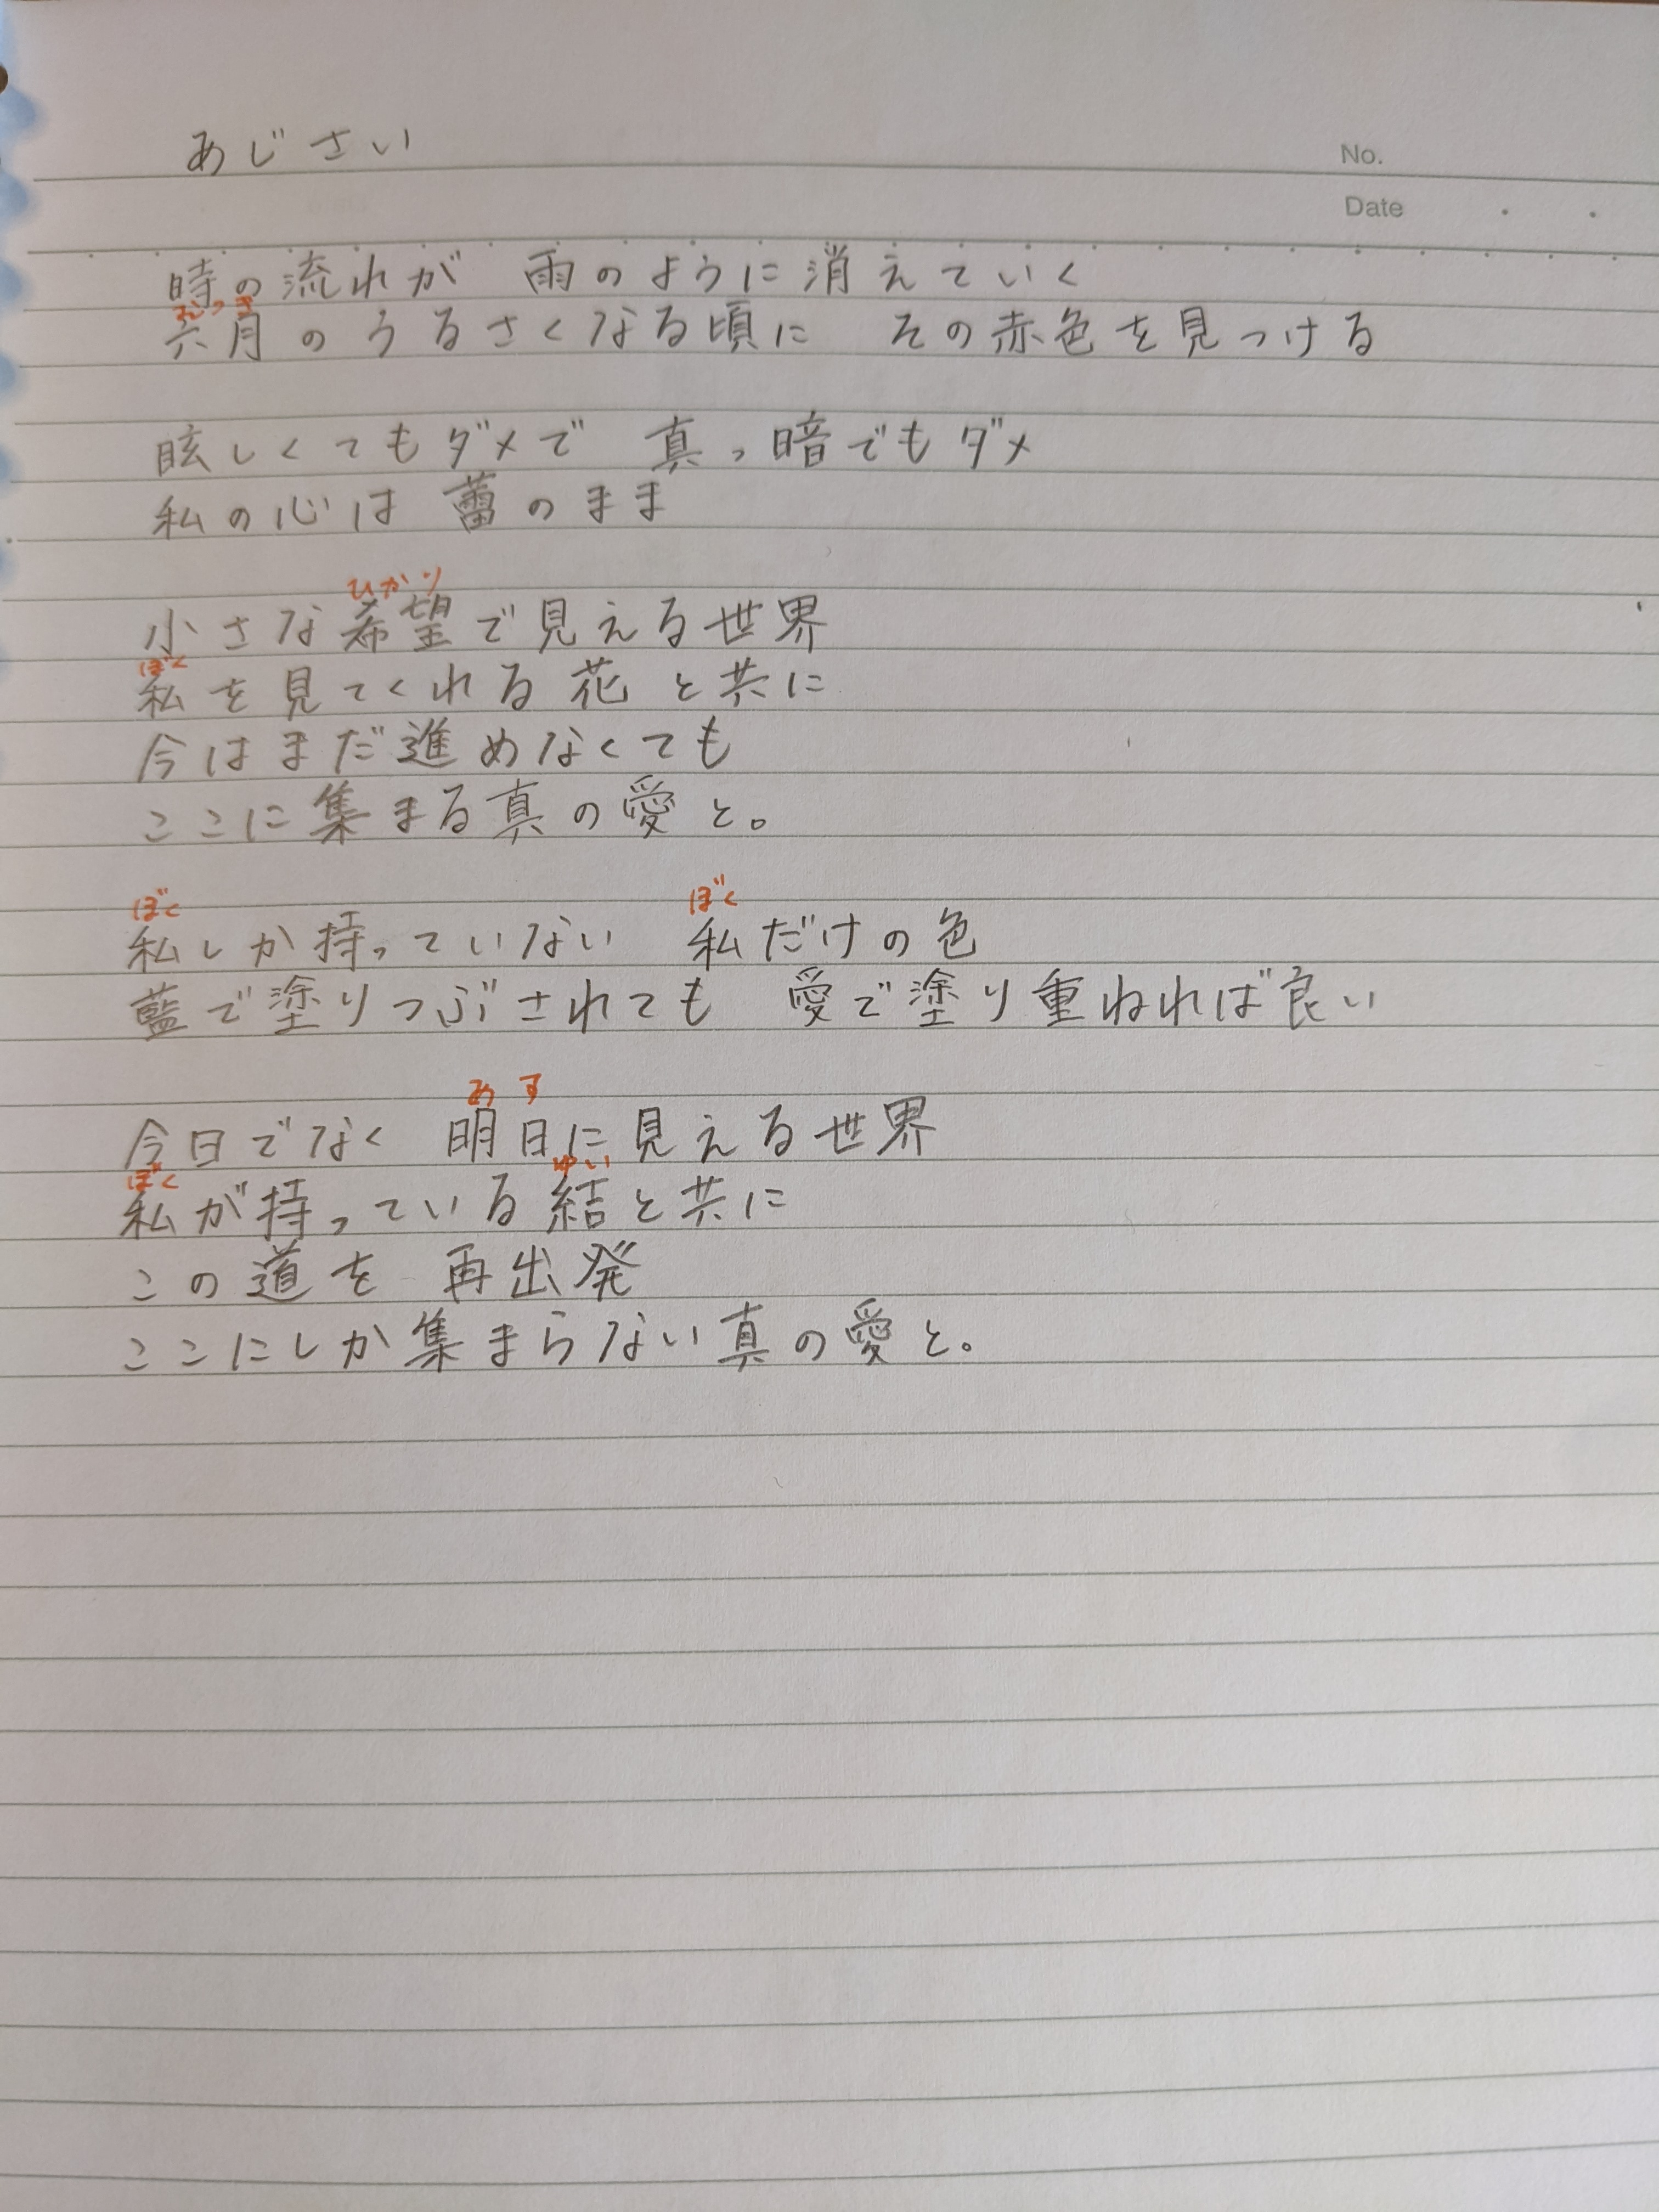 あじさい
No.
Date
時の流れが 雨のように消えていく
六月のうるさくなる頃に その赤色を見つける
眩しくてもダメで 真っ暗でもダメ
私の心は 蕾のまま
ひかり
小さな希望で見える世界
ぼく
私を見てくれる花と共に
今はまだ進めなくても
ここに集まる真の愛と。
ぼく ぼく
私しか持っていない 私だけの色
藍で塗りつぶされても 愛で塗り重ねれば良い
あす
今日でなく 明日に見える世界
ぼく ゆい
私が持っている結と共に
この道を 再出発
ここにしか集まらない真の愛と。